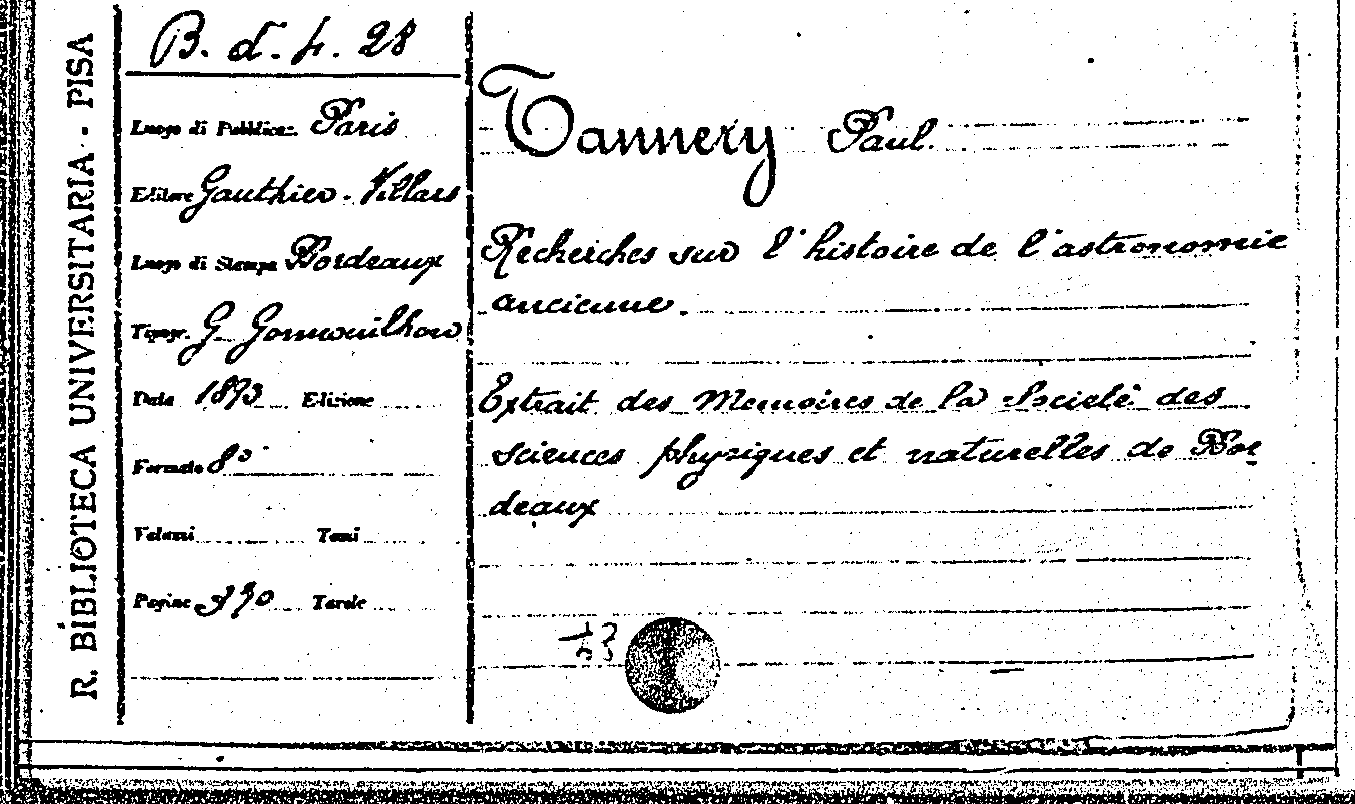 R. BIBLIOTECA UNIVERSITARIA - PISA
B. d. 4. 28
Luogo di Pubblicaz. Paris
Editore Gauthier-Villars
Luogo di Stampa Bordeaux
Tipogr. G. Gounouilhou
Data 1893 Edizione
Formato 8°
Volumi Tomi
Pagine 370 Tavole
Tannery Paul.
Recherches sur l'histoire de l'astronomie
ancienne.
Extrait des Memoires de la Société des
sciences physiques et naturelles de Bor
deaux